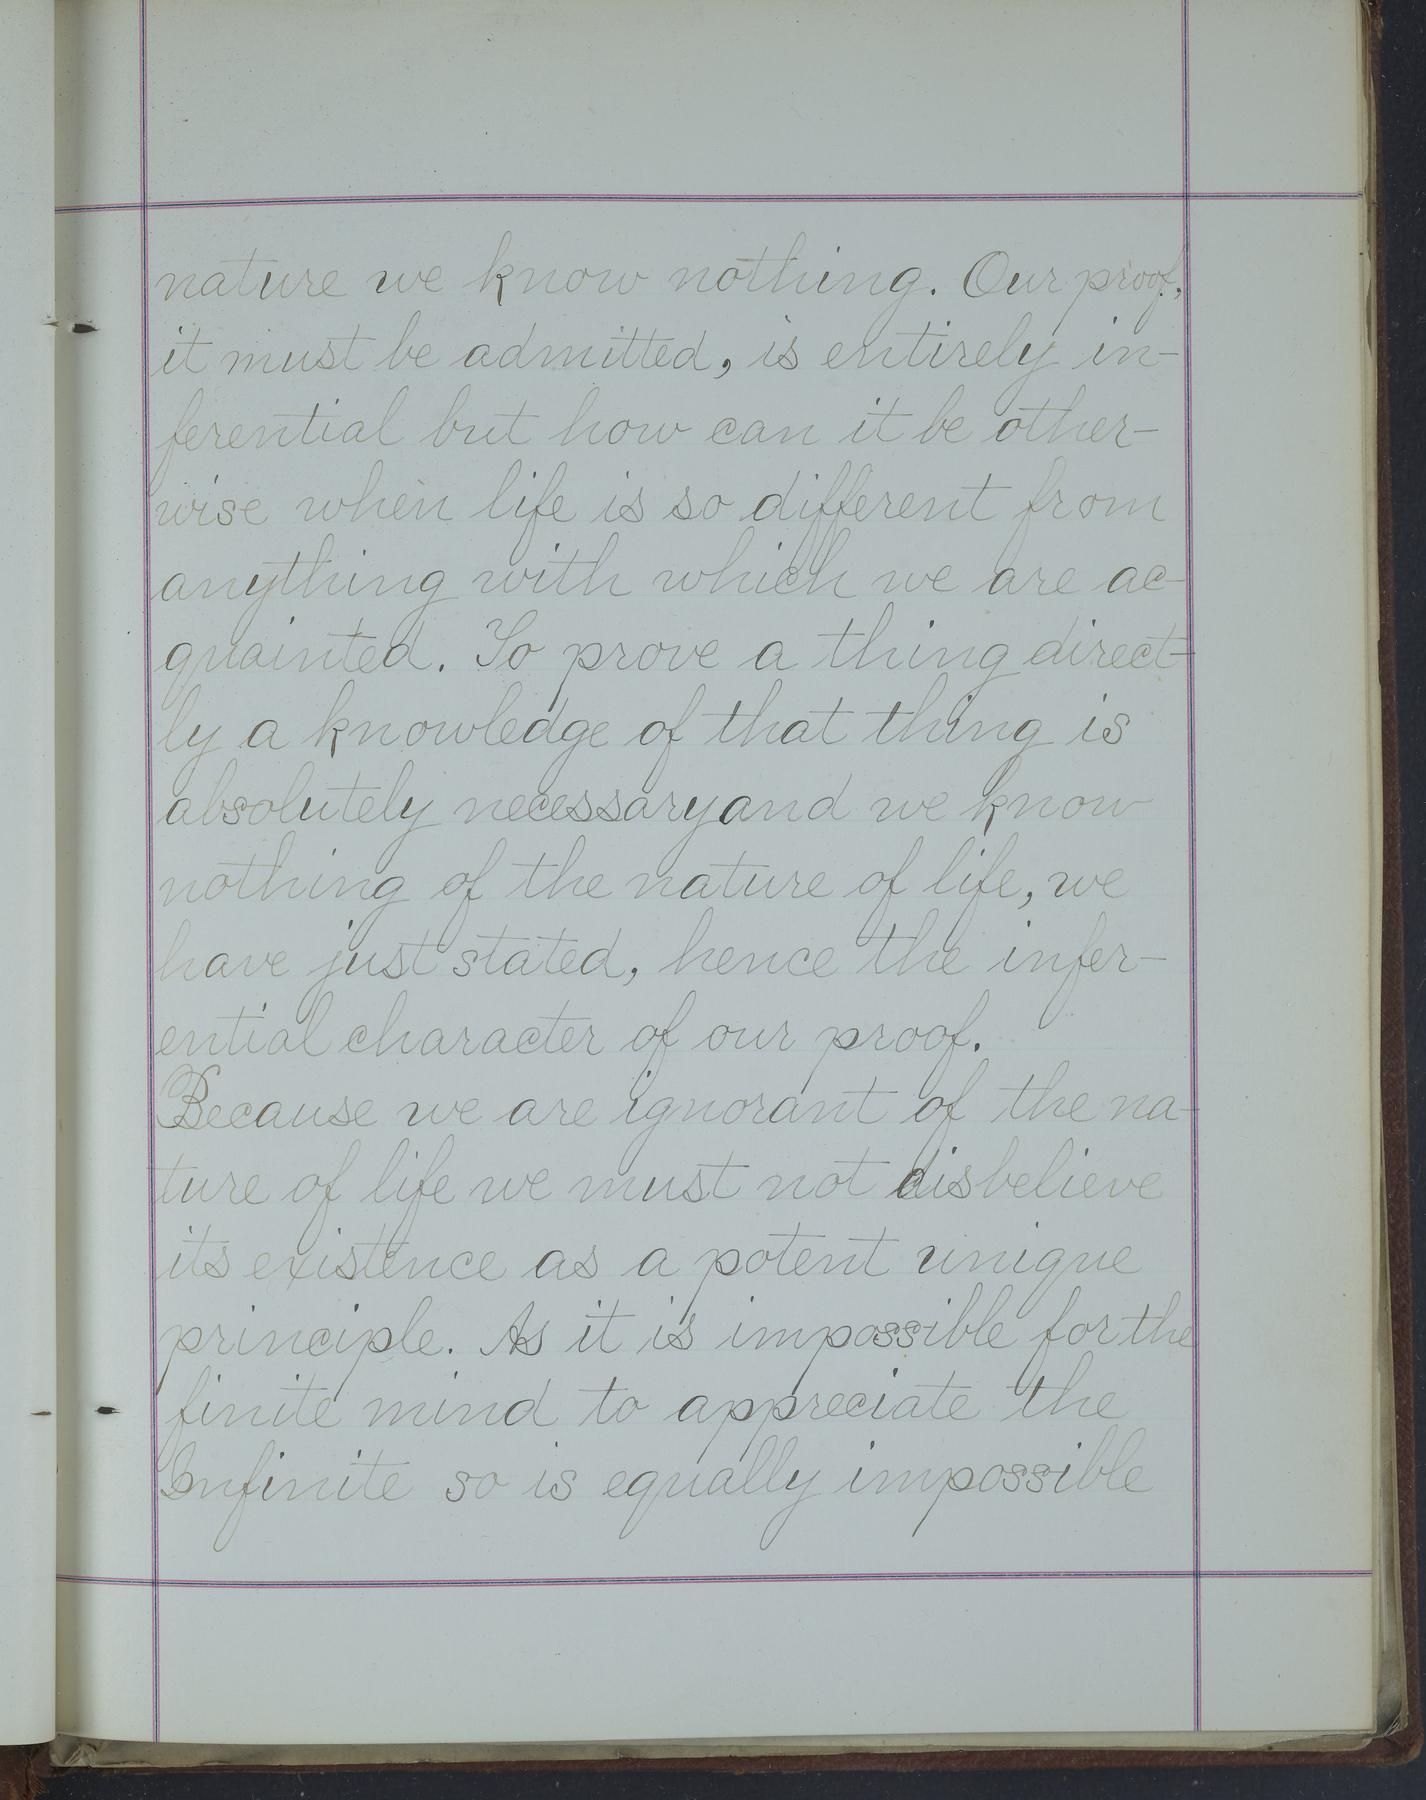 nature we know nothing. Our proof,
it must be admitted, is entirely in-
ferential but how can it be other-
wise when life is so different from
anything with which we are ac-
quainted. To prove a thing direct-
ly a knowledge of that thing is
absolutely necessary and we know
nothing of the nature of life, we
have just stated, hence the infer-
ential character of our proof.
Because we are ignorant of the na-
ture of life we must not disbelieve
its existence as a potent unique
principle. As it is impossible for the
finite mind to appreciate the
Infinite so is equally impossible